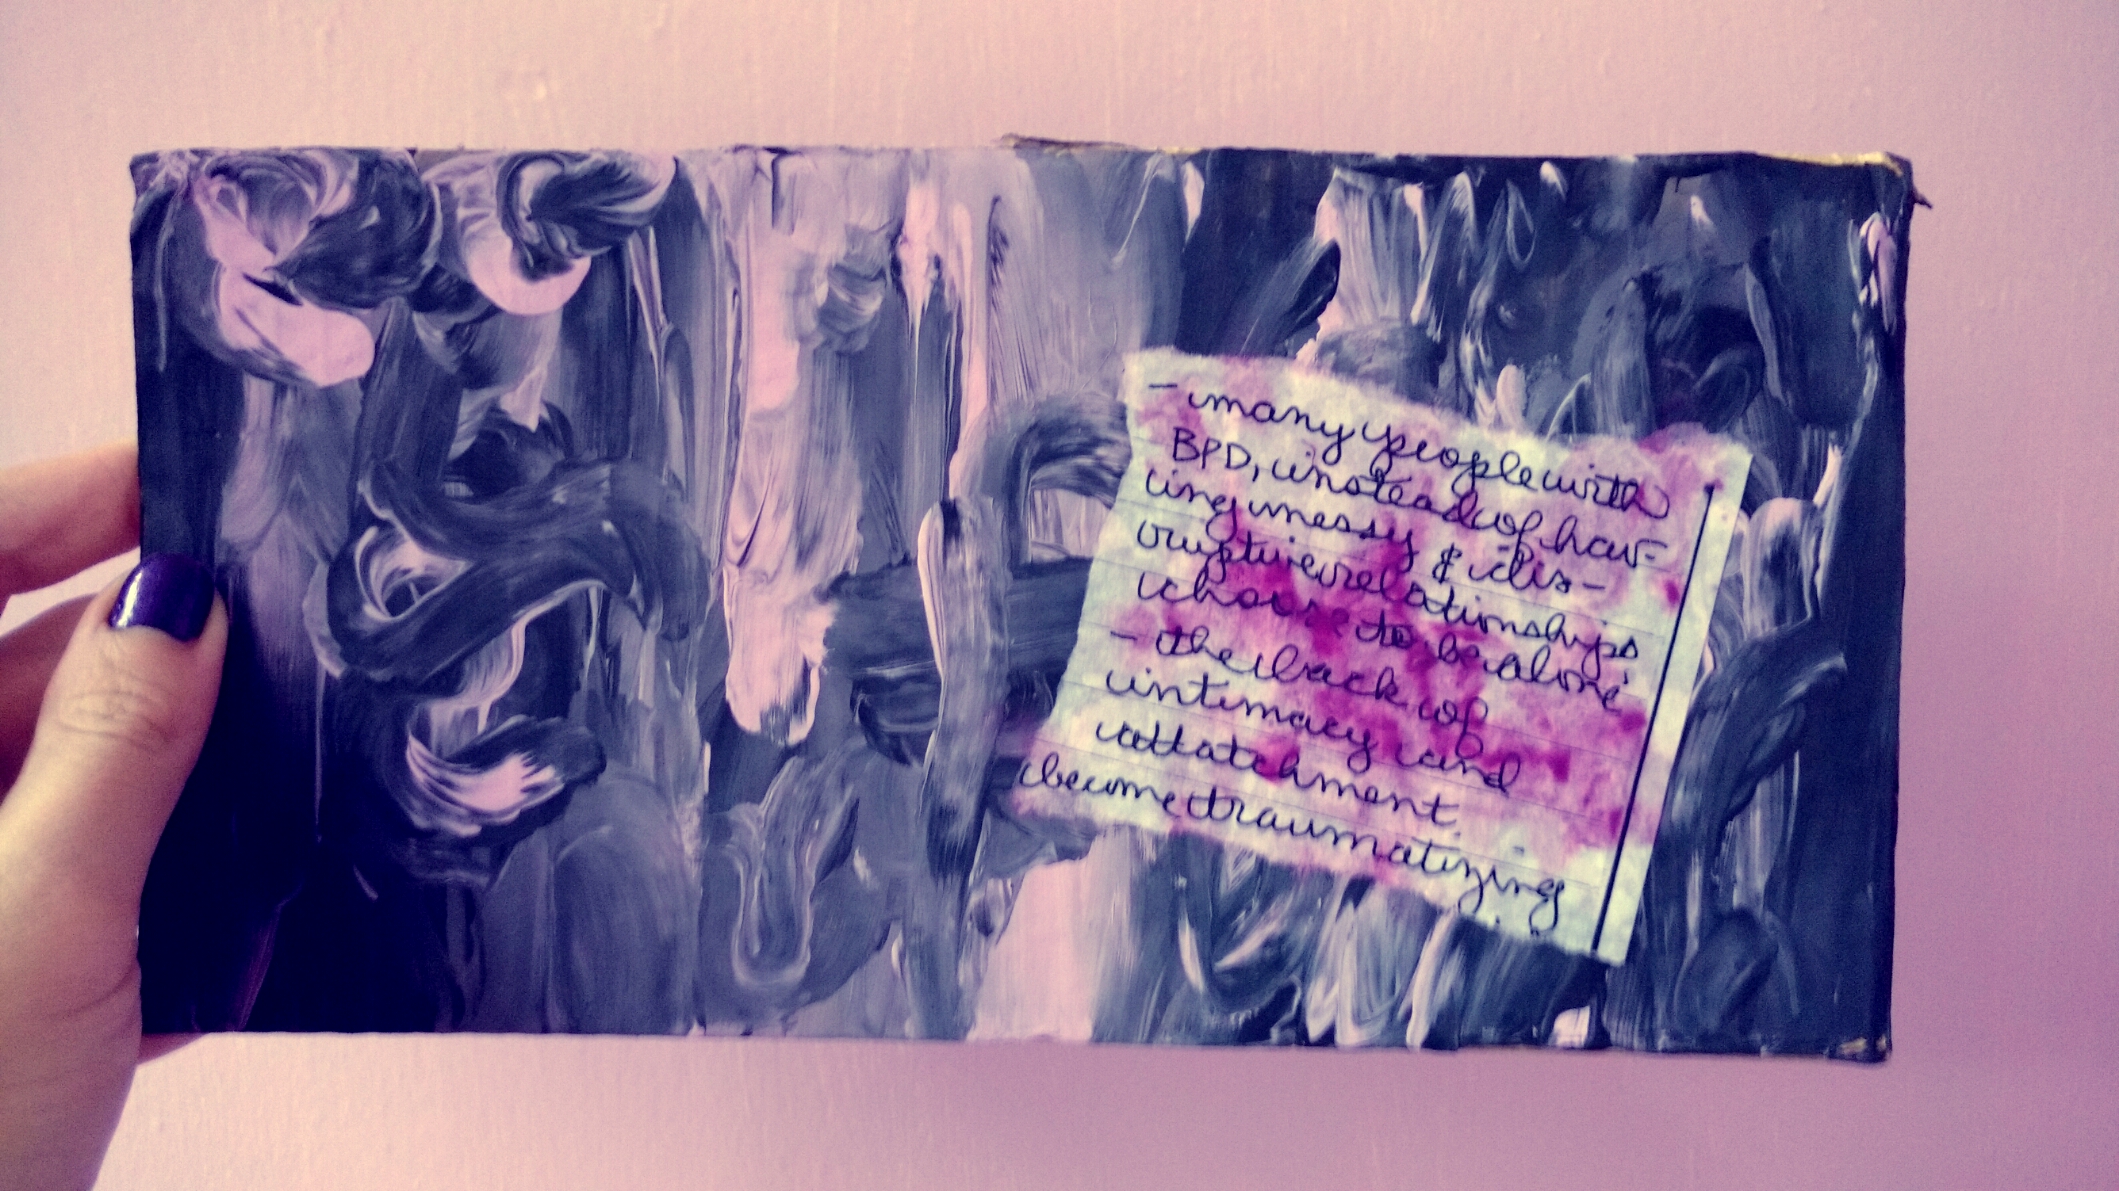 - many people with
BPD, instead of hav-
ing messy & dis-
ruptive relationships
choose to be alone
- the lack of
intimacy and
attatchment
become traumatizing